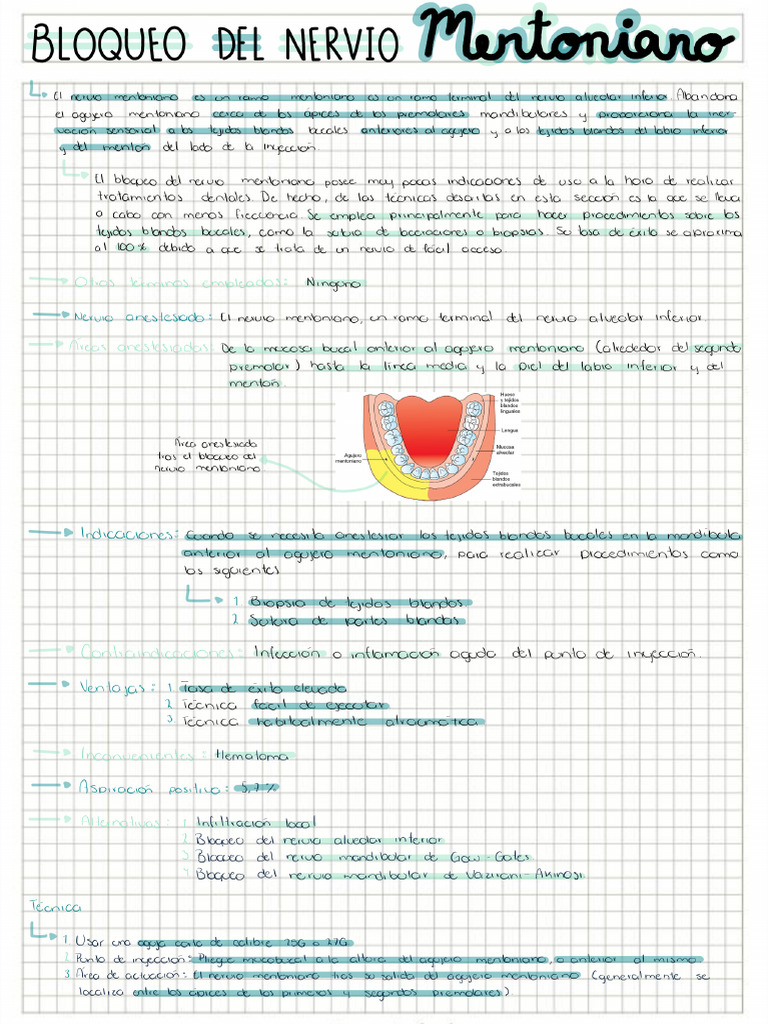 BLOQUEO DEL NERVIO Mentoniano
El nervio mentoniano es un ramo mentoniano es un ramo terminal del nervio alveolar inferior. Abandona
el agujero mentoniano cerca de los ápices de los premolares mandibulares y proporciona la iner-
vación sensorial a los tejidos blandos bucales anteriores al agujero y a los tejidos blandos del labio inferior
y del mentón del lado de la inyección.
El bloqueo del nervio mentoniano posee muy pocas indicaciones de uso a la hora de realizar
tratamientos dentales. De hecho, de las técnicas descritas en esta sección es la que se lleva
a cabo con menos frecuencia. Se emplea principalmente para hacer procedimientos sobre los
tejidos blandos bucales, como la sutura de laceraciones o biopsias. Su tasa de éxito se aproxima
al 100% debido a que se trata de un nervio de fácil acceso.
Otros terminos empleados: Ninguno
Nervio anestesiado: El nervio mentoniano, un ramo terminal del nervio alveolar inferior.
Áreas anestesiadas: De la mucosa bucal anterior al agujero mentoniano (alrededor del segundo
premolar) hasta la línea media y la piel del labio inferior y del
mentón.
Hueso
y tejidos
blandos
linguales
Lengua
Mucosa
alveolar
Tejidos
blandos
extrabucales
Agujero
mentoniano
Área anestesiada
tras el bloqueo del
nervio mentoniano
Indicaciones: Cuando se necesita anestesiar los tejidos blandos bucales en la mandíbula
anterior al agujero mentoniano, para realizar procedimientos como
los siguientes
1 Biopsia de tejidos blandos
2 Sutura de partes blandas
Contraindicaciones: Infección o inflamación aguda del punto de inyección.
Ventajas: 1. Tasa de éxito elevada
2 Técnica fácil de ejecutar
3. Técnica habitualmente atraumática
Inconvenientes: Hematoma
Aspiración positiva: 5,7%
Alternativas: 1 Infiltración local
2. Bloqueo del nervio alveolar inferior
3 Bloqueo del nervio mandibular de Gow-Gates
4. Bloqueo del nervio mandibular de Vazirani-Akinosi
Técnica
1. Usar una aguja corta de calibre 25G o 27G
2 Punto de inyección: Pliegue mucobucal a la altura del agujero mentoniano, o anterior al mismo
3 Área de actuación: El nervio mentoniano tras su salida del agujero mentoniano (generalmente se
localiza entre los ápices de los primeros y segundos premolares).